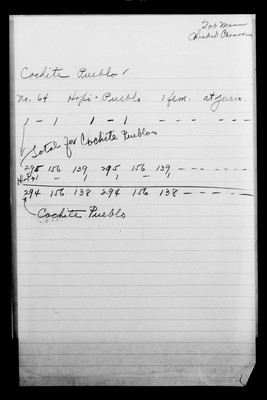 Cochite Pueblo
No. 64 Hopi - Pueblo 1 fem. at juris.
1 - 1 1 - 1 - - - - - -
Total for Cochite Pueblo
295 156 139 295 156 139 - - - - - -
1 - 1 1 - 1
294 156 138 294 156 138 - - - - -
Cochite Pueblo